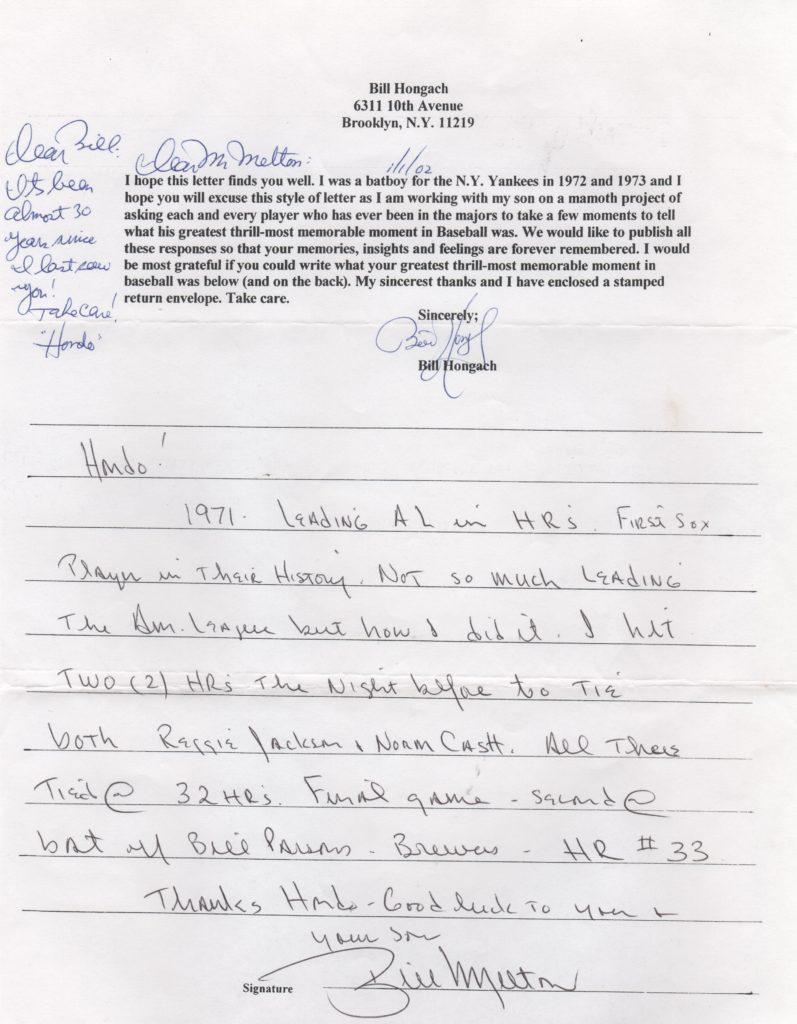 Bill Hongach
6311 10th Avenue
Brooklyn, N.Y. 11219
Dear Bill:
It's been
almost 30
years since
I last saw
you!
Take Care!
"Hondo"
Dear Mr Melton:
1/1/02
I hope this letter finds you well. I was a batboy for the N.Y. Yankees in 1972 and 1973 and I
hope you will excuse this style of letter as I am working with my son on a mammoth project of
asking each and every player who has ever been in the majors to take a few moments to tell
what his greatest thrill-most memorable moment in Baseball was. We would like to publish all
these responses so that your memories, insights and feelings are forever remembered. I would
be most grateful if you could write what your greatest thrill-most memorable moment in
baseball was below (and on the back). My sincerest thanks and I have enclosed a stamped
return envelope. Take care.
Sincerely;
Bill Hongach
Hondo!
1971. Leading AL in HRs. First Sox
Player in Their History. Not so much Leading
The Am. League but how I did it. I hit
TWO (2) HRs The Night before to Tie
both Reggie Jackson & Norm Cash. All Three
Tied @ 32 HRs. Final game - second @
bat off Bill Parsons - Brewers - HR # 33
Thanks Hondo - Good luck To you &
your son
Signature Bill Melton